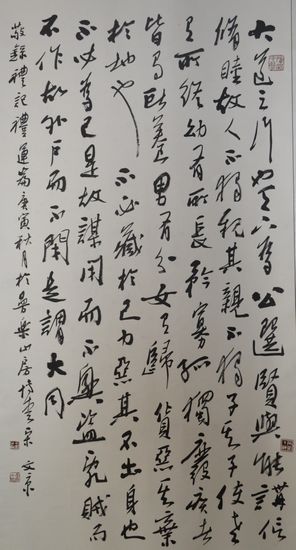 大道之行也天下為公選賢與能講信
脩睦故人不獨親其親不獨子其子使老
有所終幼有所長矜寡孤獨廢疾者
皆有所養男有分女有歸貨惡其棄
於地也不必藏於己力惡其不出身也
不必為己是故謀閉而不興盜亂賊而
不作故外戶而不閉是謂大同
敬錄禮記禮運篇庚寅秋月於魯樂山房